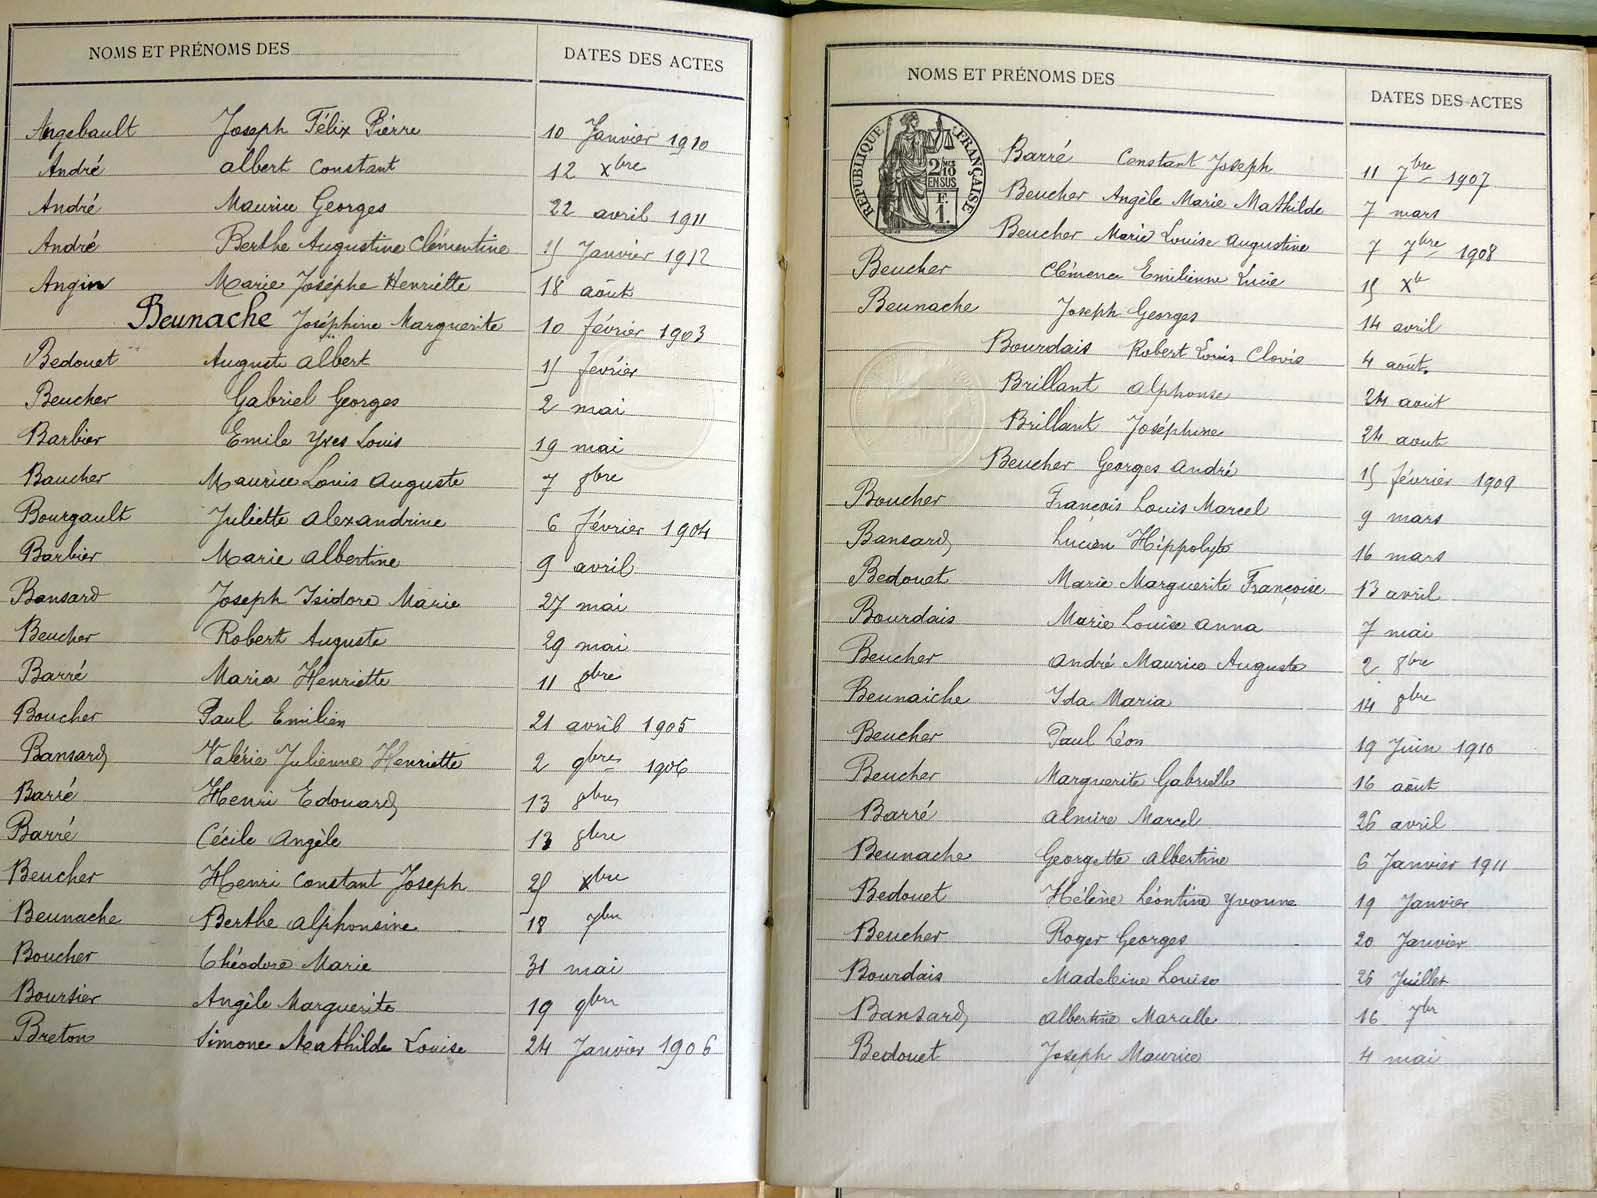 NOMS ET PRÉNOMS DES DATES DES ACTES
Angebault Joseph Félix Pierre 10 Janvier 1910
André Albert Constant 12 Xbre
André Maurice Georges 22 avril 1911
André Berthe Augustine Clémentine 15 Janvier 1912
Angin Marie Josèphe Henriette 18 août
Beunache Joséphine Marguerite 10 février 1903
Bedouet Auguste Albert 15 février
Beucher Gabriel Georges 2 mai
Barbier Emile Yves Louis 19 mai
Baucher Maurice Louis Auguste 7 8bre
Bourgault Juliette Alexandrine 6 février 1904
Barbier Marie Albertine 9 avril
Bansard Joseph Isidore Marie 27 mai
Beucher Robert Auguste 29 mai
Barré Maria Henriette 11 8bre
Boucher Paul Emilien 21 avril 1905
Bansard Valérie Julienne Henriette 2 9bre 1906
Barré Henri Edouard 13 8bre
Barré Cécile Angèle 13 8bre
Beucher Henri Constant Joseph 25 Xbre
Beunache Berthe Alphonsine 18 7bre
Boucher Théodore Marie 31 mai
Boursier Angèle Marguerite 19 9bre
Breton Simone Mathilde Louise 24 Janvier 1906
NOMS ET PRÉNOMS DES DATES DES ACTES
RÉPUBLIQUE FRANÇAISE
2/10 EN SUS
F. 1.
Barré Constant Joseph 11 7bre 1907
Beucher Angèle Marie Mathilde 7 mars
Beucher Marie Louise Augustine 7 7bre 1908
Beucher Clémence Emilienne Lucie 15 Xb
Beunache Joseph Georges 14 avril
Bourdais Robert Louis Clovis 4 août.
Brillant Alphonse 24 aout
Brillant Joséphine 24 aout
Beucher Georges André 15 février 1909
Boucher François Louis Marcel 9 mars
Bansard Lucien Hippolyte 16 mars
Bedouet Marie Marguerite Françoise 13 avril
Bourdais Marie Louise Anna 7 mai
Beucher André Maurice Auguste 2 8bre
Beunaiche Ida Maria 14 8bre
Beucher Paul Léon 19 Juin 1910
Beucher Marguerite Gabrielle 16 août
Barré Almire Marcel 26 avril
Beunache Georgette Albertine 6 Janvier 1911
Bedouet Hélène Léontine Yvonne 19 Janvier
Beucher Roger Georges 20 Janvier
Bourdais Madeleine Louise 26 Juillet
Bansard Albertine Marcelle 16 7br
Bedouet Joseph Maurice 4 mai